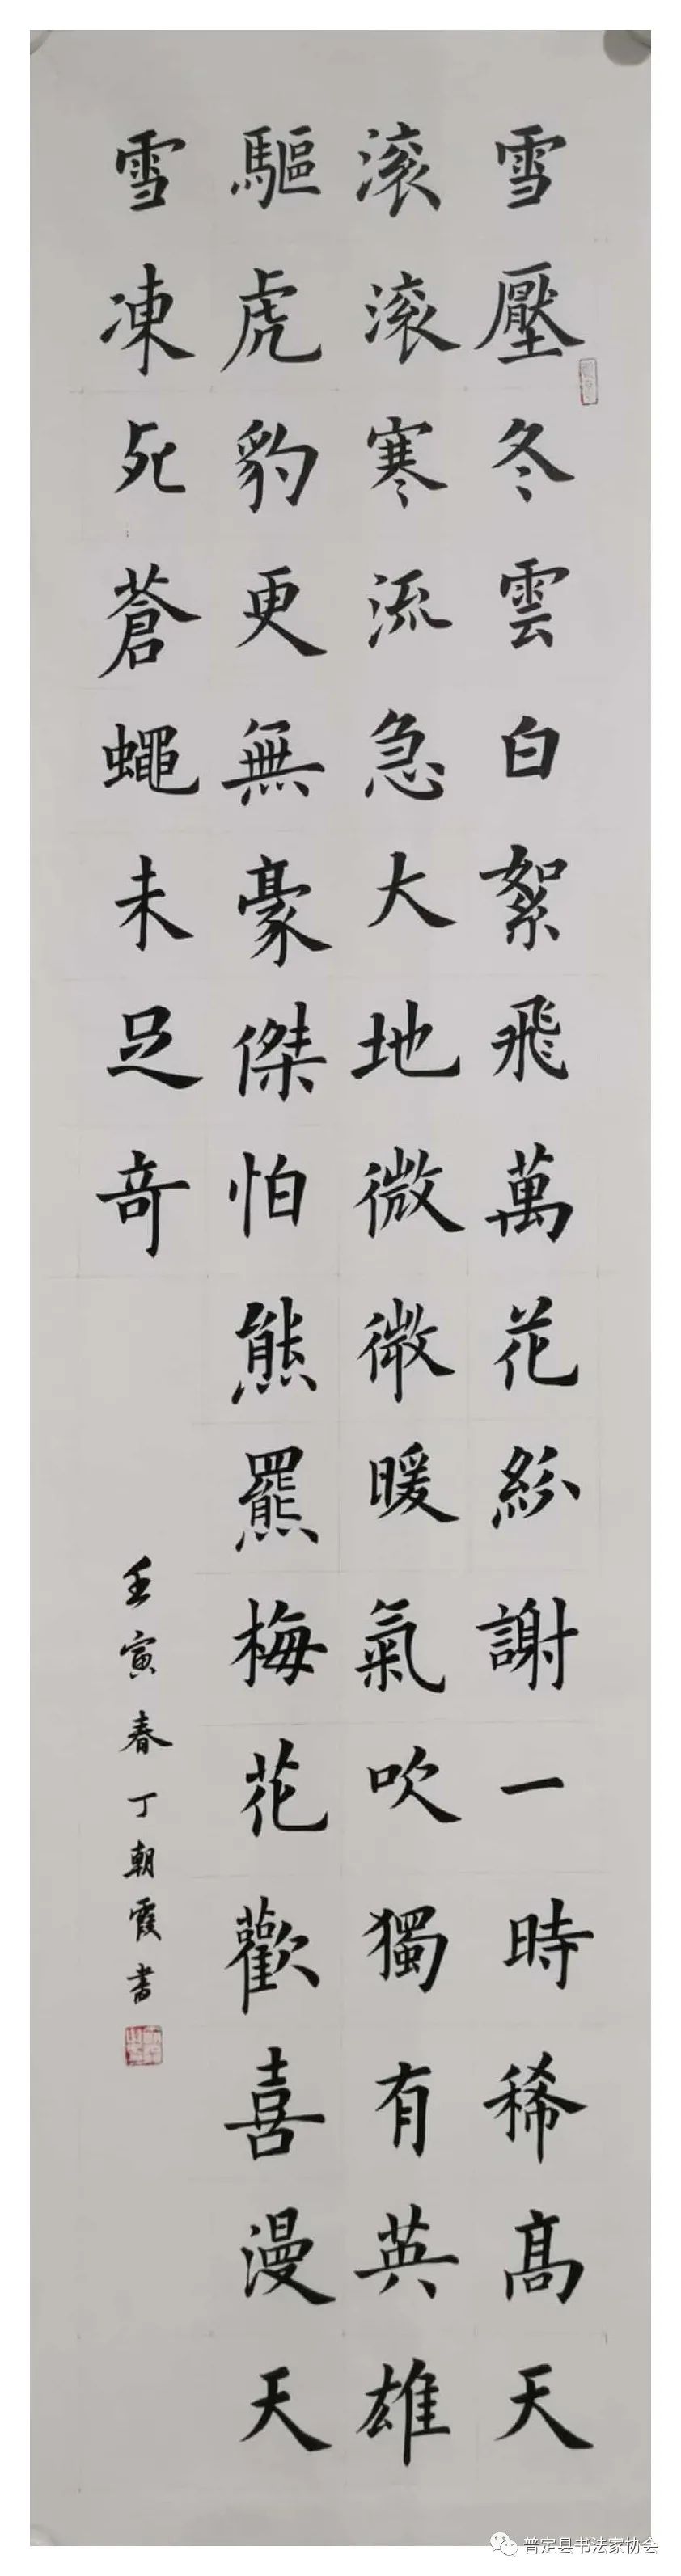 雪壓冬雲白絮飛萬花紛謝一時稀高天
滾滾寒流急大地微微暖氣吹獨有英雄
驅虎豹更無豪傑怕熊羆梅花歡喜漫天
雪凍死蒼蠅未足奇
壬寅春丁朝霞书
普定县书法家协会